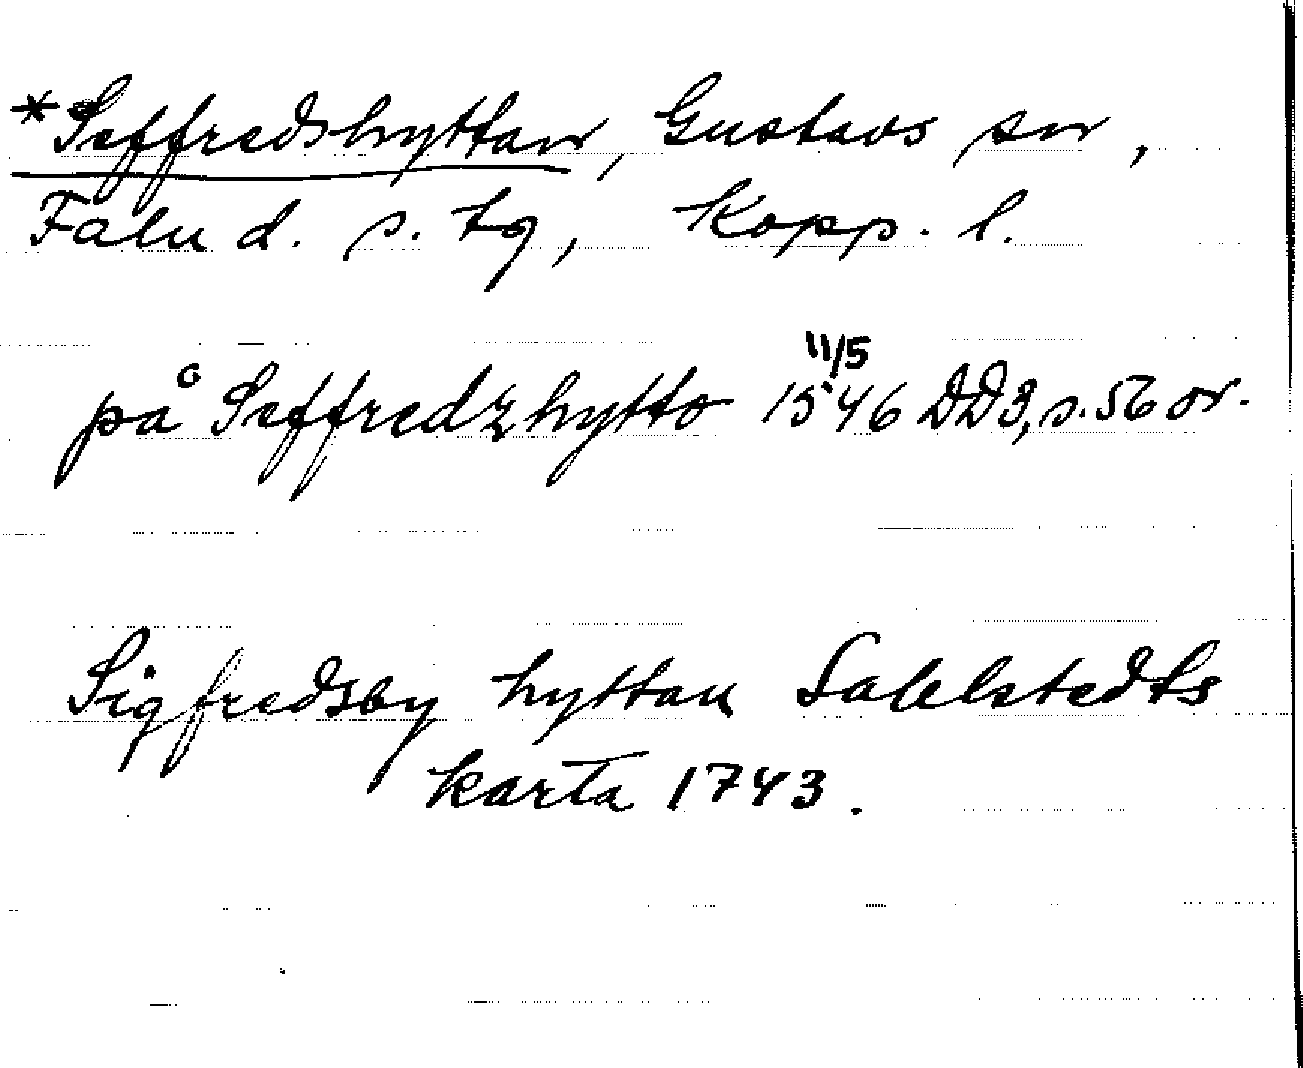 *Seffredshyttan, Gustavs sn,
Falu d. s. tg, Kopp. l.
på Seffredzhytto 11/5 1546 DD3, s. 56 or.
Sigfredsby hyttan Sahlstedts
karta 1743.